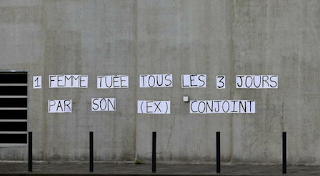 1 FEMME TUÉE TOUS LES 3 JOURS
PAR SON (EX) CONJOINT